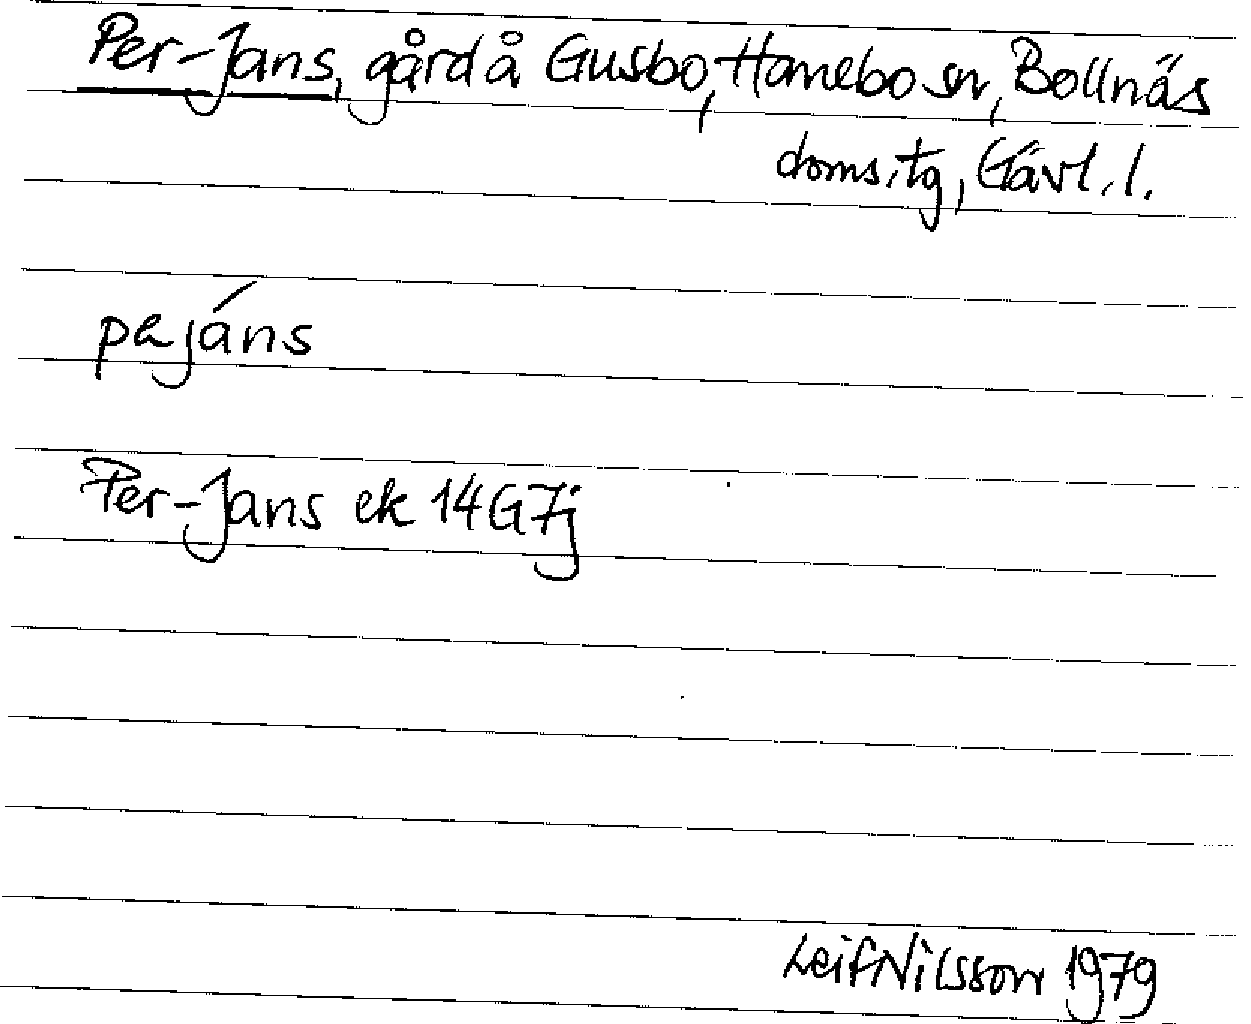 Per-Jans, gård å Gusbo, Hanebo sn, Bollnäs
doms.tg, Gävl. l.
pajáns
Per-Jans ek 14G7j
Leif Nilsson 1979